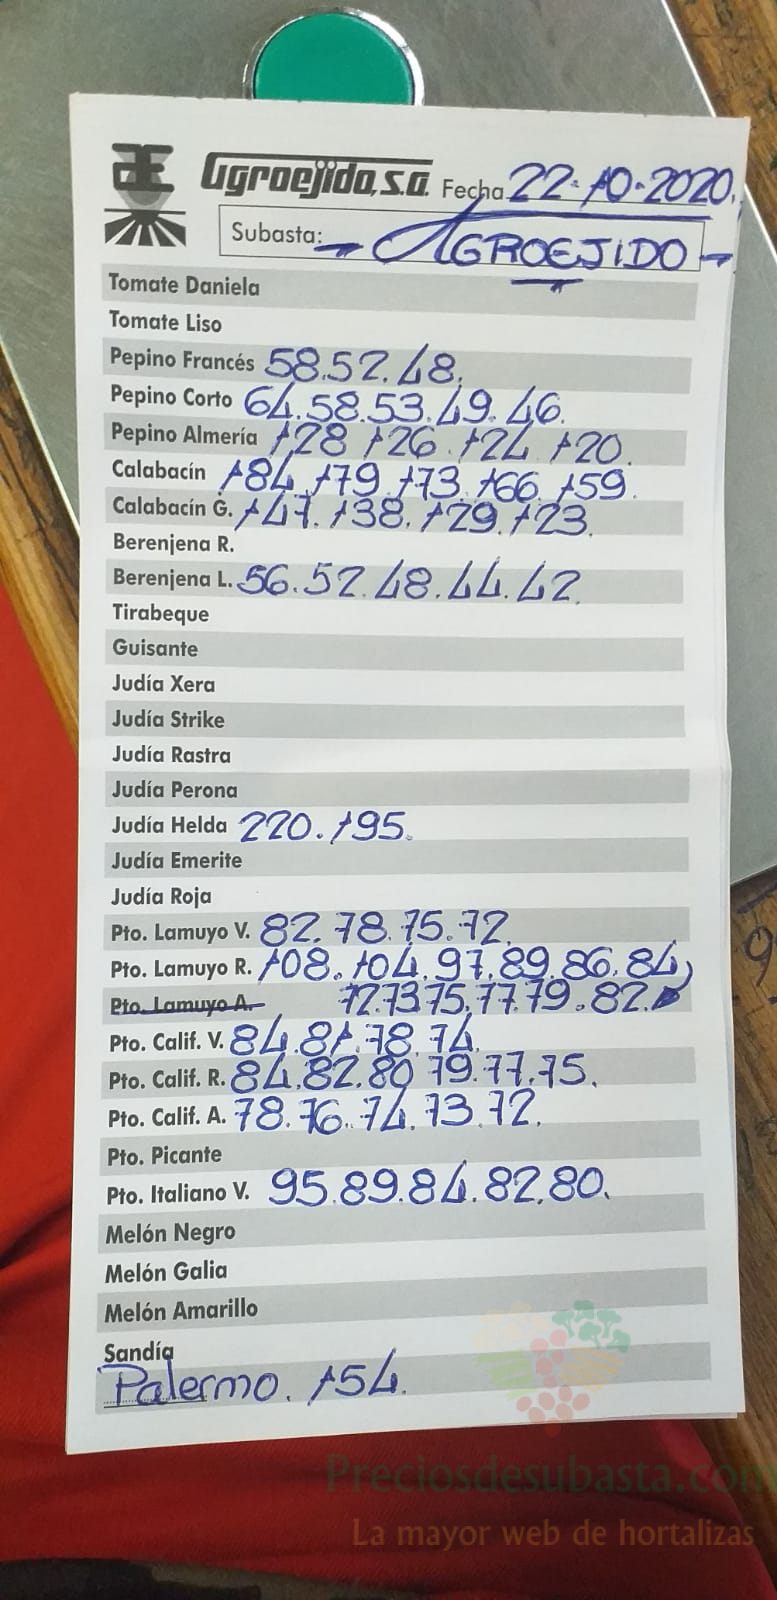 Agroejido, s.a. Fecha 22-10-2020.
Subasta: - AGROEJIDO -
Tomate Daniela
Tomate Liso
Pepino Francés 58.52.48.
Pepino Corto 64.58.53.49.46.
Pepino Almería 128 126.124 120.
Calabacín 184.179.173.166.159.
Calabacín G. 147.138.129.123.
Berenjena R.
Berenjena L. 56.52.48.44.42.
Tirabeque
Guisante
Judía Xera
Judía Strike
Judía Rastra
Judía Perona
Judía Helda 220.195.
Judía Emerite
Judía Roja
Pto. Lamuyo V. 82.78.75.72.
Pto. Lamuyo R. 108.104.97.89.86.84,
Pto. Lamuyo A. 72.73.75.77.79.82.
Pto. Calif. V. 84.81.78.74.
Pto. Calif. R. 84.82.80 79.77.75.
Pto. Calif. A. 78.76.74.73.72.
Pto. Picante
Pto. Italiano V. 95.89.84.82.80.
Melón Negro
Melón Galia
Melón Amarillo
Sandía
Palermo. 154.
Preciosdesubasta.com
La mayor web de hortalizas